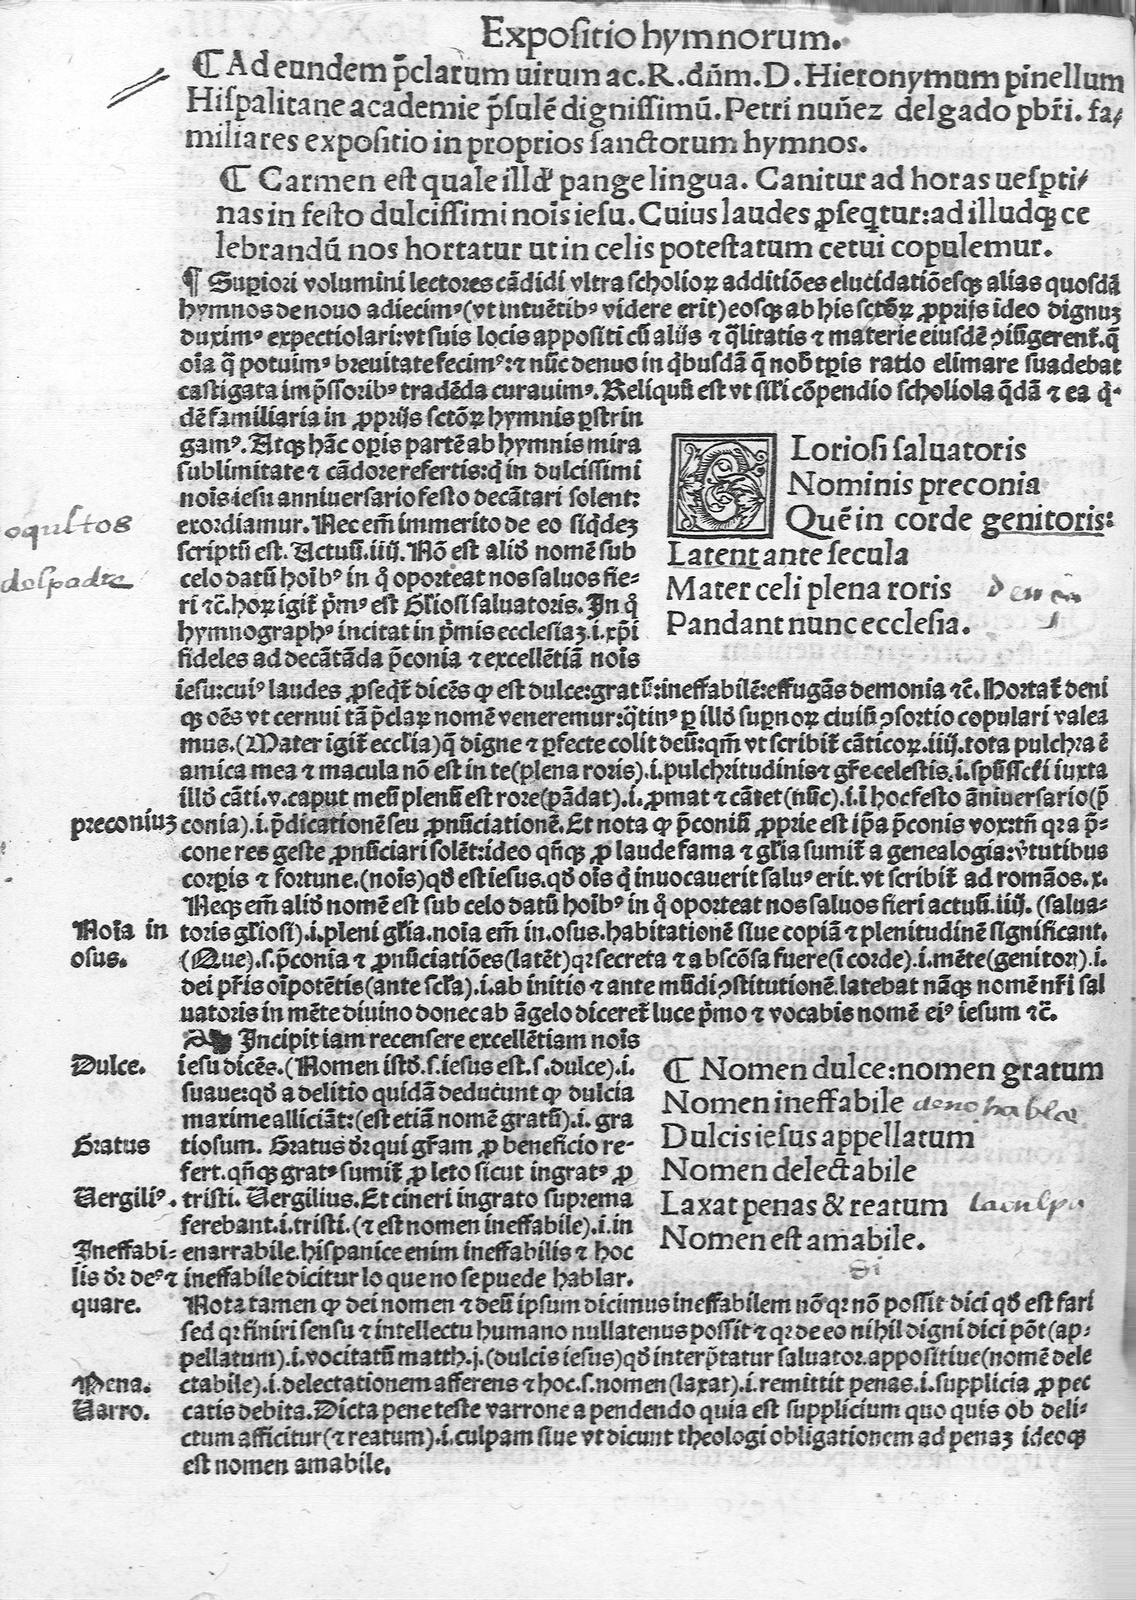 Expositio hymnorum.
¶ Ad eundem p̄clarum uirum ac. R. dn̄m. D. Hieronymum pinellum
Hispalitane academie p̄sulē dignissimū. Petri nuñez delgado pbr̄i. fa/
miliares expositio in proprios sanctorum hymnos.
¶ Carmen est quale illd̓ pange lingua. Canitur ad horas uesꝑti/
nas in festo dulcissimi noīs iesu. Cuius laudes ꝓseqtur: ad illudqꝫ ce
lebrandū nos hortatur ut in celis potestatum cetui copulemur.
¶ Suꝑiori volumini lectores cādidi vltra scholioꝝ additiōes elucidatiōesqꝫ alias quosdā
hymnos de nouo adiecimꝰ (vt intuētibꝰ videre erit) eosqꝫ ab his sctōꝝ ꝓprijs ideo dignuꝫ
duximꝰ expectiolari: vt suis locis appositi cū alijs ⁊ q̄litatis ⁊ materie eiusdē ꝯiūgerent̄. q̄
oīa q̄ potuimꝰ breuitate fecimꝰ: ⁊ nūc denuo in qͥbusdā q̄ nob̄ tꝑis ratio elimare suadebat
castigata imp̄ssoribꝰ tradēda curauimꝰ. Reliquū est vt sili cōpendio scholiola q̄dā ⁊ ea qͥ-
dē familiaria in ꝓprijs sctōꝝ hymnis ꝑstrin
gamꝰ. Atqꝫ hāc oꝑis partē ab hymnis mira
sublimitate ⁊ cādore refertis: qͥ in dulcissimi
nois iesu anniuersario festo decātari solent:
exordiamur. Nec em̄ immerito de eo siqͥdeꝫ
scriptū est. Actuū. iiij. Nō est aliud̓ nomē sub
celo datū hoībꝰ in qͦ oporteat nos saluos fie-
ri ⁊c̄. hoꝝ igit̄ pͥmꝰ est Gliosi saluatoris. In qͦ
hymnographꝰ incitat in pͥmis ecclesiaꝫ .i. xp̄i
fideles ad decātāda p̄conia ⁊ excellētiā nois
Loriosi saluatoris
Nominis preconia
Quē in corde genitoris:
Latent ante secula
Mater celi plena roris
Pandant nunc ecclesia.
oqultos
del padre
iesu: cuiꝰ laudes ꝓseqt̄ dicēs ꝙ est dulce: gratū: ineffabilē: effugās demonia ⁊c̄. Hortat̄ deni
qꝫ oēs vt cernui tā p̄claꝝ nomē veneremur: q̄tinꝰ ꝑ illud̓ suꝑnoꝝ ciuiū ꝯsortio copulari valea
mus. (Mater igit̄ ecclia) q̄ digne ⁊ ꝑfecte colit deū: qm̄ vt scribit̄ cāticoꝝ. iiij. tota pulchra ē
amica mea ⁊ macula nō est in te (plena roris) .i. pulchritudinis ⁊ gr̄e celestis .i. spūs scti iuxta
illud̓ cāti. v. caput meū plenū est rore (pādat) .i. ꝓmat ⁊ cātet (nūc) .i. ī hoc festo āniuersario (p̄
preconiuꝫ
conia) .i. p̄dicationē seu ꝓnūciationē. Et nota ꝙ p̄coniū ꝓprie est ip̄a p̄conis vox: tn̄ qꝛ a p̄-
cone res geste ꝓnūciari solēt: ideo qn̄qꝫ ꝓ laude fama ⁊ glia sumit̄ a genealogia: v̓tutibus
corꝑis ⁊ fortune. (nois) qd̓ est iesus. qd̓ ois qͥ inuocauerit saluꝰ erit. vt scribit̄ ad romāos. x.
Neqꝫ em̄ aliud̓ nomē est sub celo datū hoībꝰ in qͦ oporteat nos saluos fieri actuū. iiij. (salua-
Noīa in
osus.
toris gliosi) .i. pleni glia. noīa em̄ in. osus. habitationē siue copiā ⁊ plenitudinē significant.
(Que) .s. p̄conia ⁊ ꝓnūciatiōes (latēt) qꝛ secreta ⁊ abscōsa fuere (ī corde) .i. mēte (genitori) .i.
dei pr̄is oīpotētis (ante scl̄a) .i. ab initio ⁊ ante mūdi ꝯstitutionē. latebat nāqꝫ nomē nr̄i sal
uatoris in mēte diuino donec ab āgelo diceret̄ luce pͥmo ⁊ vocabis nomē eiꝰ iesum ⁊c̄.
Incipit iam recensere excellētiam nois
Dulce.
iesu dicēs. (Nomen istud̓ .s. iesus est .s. dulce) .i.
suaue: qd̓ a delitio quidā deducunt ꝙ dulcia
maxime alliciāt: (est etiā nomē gratū) .i. gra
Gratus
tiosum. Gratus dr̄ qui gr̄am ꝓ beneficio re-
fert. qn̄qꝫ gratꝰ sumit̄ ꝓ leto sicut ingratꝰ ꝓ
Uergiliꝰ.
tristi. Uergilius. Et cineri ingrato suprema
ferebant .i. tristi. (⁊ est nomen ineffabile) .i. in
Ineffabi-
lis dr̄ deꝰ ⁊
quare.
enarrabile. hispanice enim ineffabilis ⁊ hoc
ineffabile dicitur lo que no se puede hablar.
¶ Nomen dulce: nomen gratum
Nomen ineffabile
de no hablar
Dulcis iesus appellatum
Nomen delectabile
Laxat penas & reatum
la culpa
Nomen est amabile.
Nota tamen ꝙ dei nomen ⁊ deū ipsum dicimus ineffabilem nō qꝛ nō possit dici qd̓ est fari
sed qꝛ finiri sensu ⁊ intellectu humano nullatenus possit ⁊ qꝛ de eo nihil digni dici pōt (ap-
pellatum) .i. vocitatū matth. j. (dulcis iesus) qd̓ interp̄tatur saluator. appositiue (nomē dele
Pena.
Uarro.
ctabile) .i. delectationem afferens ⁊ hoc .s. nomen (laxat) .i. remittit penas .i. supplicia ꝓ pec
catis debita. Dicta pene teste varrone a pendendo quia est supplicium quo quis ob deli-
ctum afficitur (⁊ reatum) .i. culpam siue vt dicunt theologi obligationem ad penaꝫ ideoqꝫ
est nomen amabile.